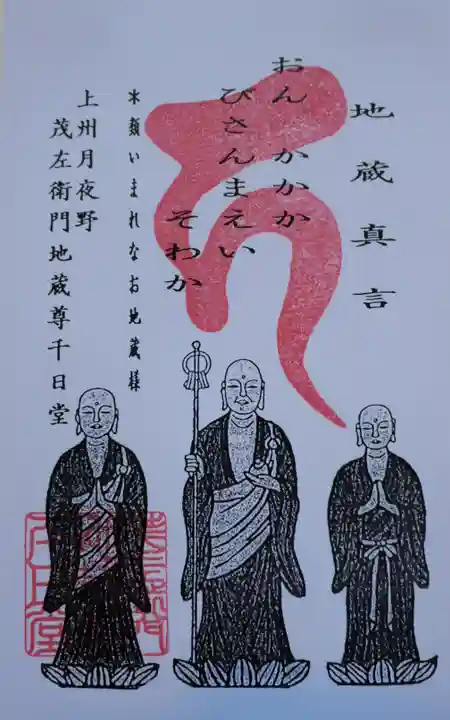 地蔵真言
おん かかか
びさんまえい
そわか
本類いまれなお地蔵様
上州月夜野
茂左衛門地蔵尊千日堂